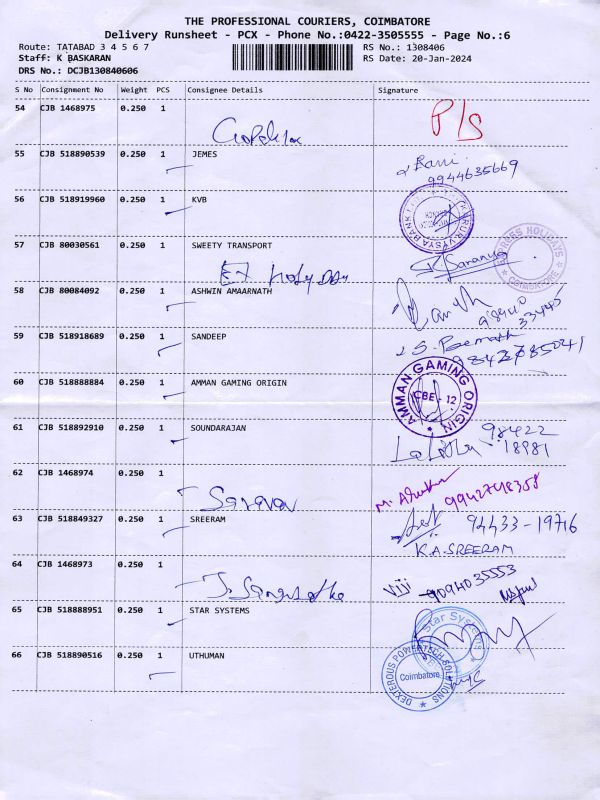 THE PROFESSIONAL COURIERS, COIMBATORE
Delivery Runsheet - PCX - Phone No.:0422-3505555 - Page No.:6
Route: TATABAD 3 4 5 6 7 RS No.: 1308406
Staff: K BASKARAN RS Date: 20-Jan-2024
DRS No.: DCJB130840606
S No Consignment No Weight PCS Consignee Details Signature
54 CJB 1468975 0.250 1 P/S
55 CJB 518890539 0.250 1 JEMES
9944635669
56 CJB 518919960 0.250 1 KVB
57 CJB 80030561 0.250 1 SWEETY TRANSPORT
EXPRESS HOLIDAYS COIMBATORE
Saranya
58 CJB 80084092 0.250 1 ASHWIN AMAARNATH
98940
33445
59 CJB 518918689 0.250 1 SANDEEP
9842785041
60 CJB 518888884 0.250 1 AMMAN GAMING ORIGIN
AMMAN GAMING ORIGIN CBE - 12
61 CJB 518892910 0.250 1 SOUNDARAJAN
Lalitha 98422
18981
62 CJB 1468974 0.250 1
9942748358
63 CJB 518849327 0.250 1 SREERAM
94433-19716
K.A.SREERAM
64 CJB 1468973 0.250 1
Viji 9094035553
65 CJB 518888951 0.250 1 STAR SYSTEMS
Star Systems
66 CJB 518890516 0.250 1 UTHUMAN
DEXTEROUS POWERTECH SOLUTIONS Coimbatore